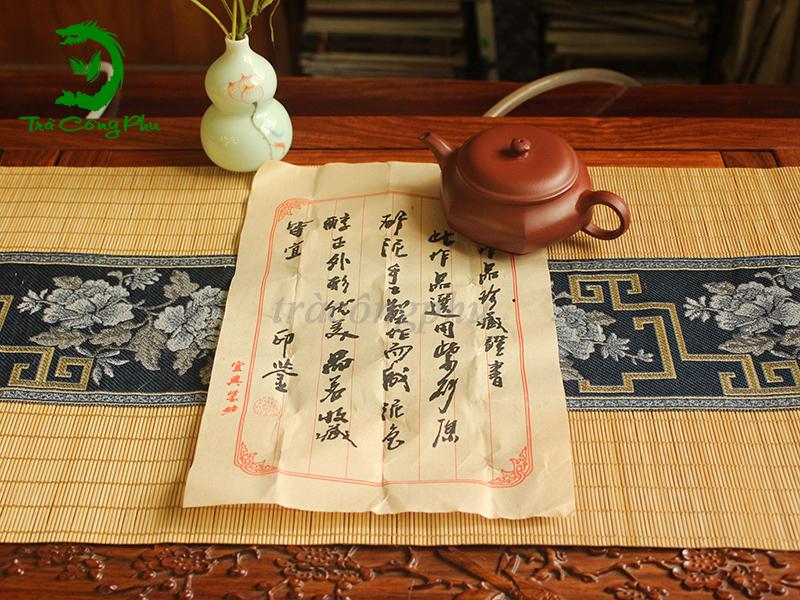 Trà Công Phu
trà công phu
作品珍藏證書
此作品選用紫砂原
砂泥手工製作而成泥色
醇正外形优美品茗收藏
皆宜
印鉴
宜興紫砂